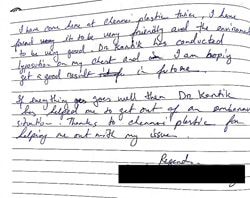 I have come here at chennai plastics twice, I have
found very it to be very friendly and the environment
to be very good Dr Kartik has conducted
lyposation on my chest and I am hoping
get a good result in future.
If everything goes well then Dr Kartik
has helped me to get out of an
situation. Thanks to chennai plastics for
helping me out with my issue.